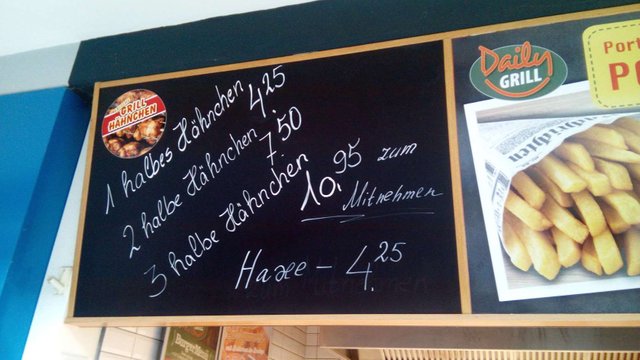 GRILL
HÄHNCHEN
1 halbes Hähnchen 4.25
2 halbe Hähnchen 7.50
3 halbe Hähnchen 10.95 zum
Mitnehmen
Haxe - 4.25
Daily
GRILL
Port